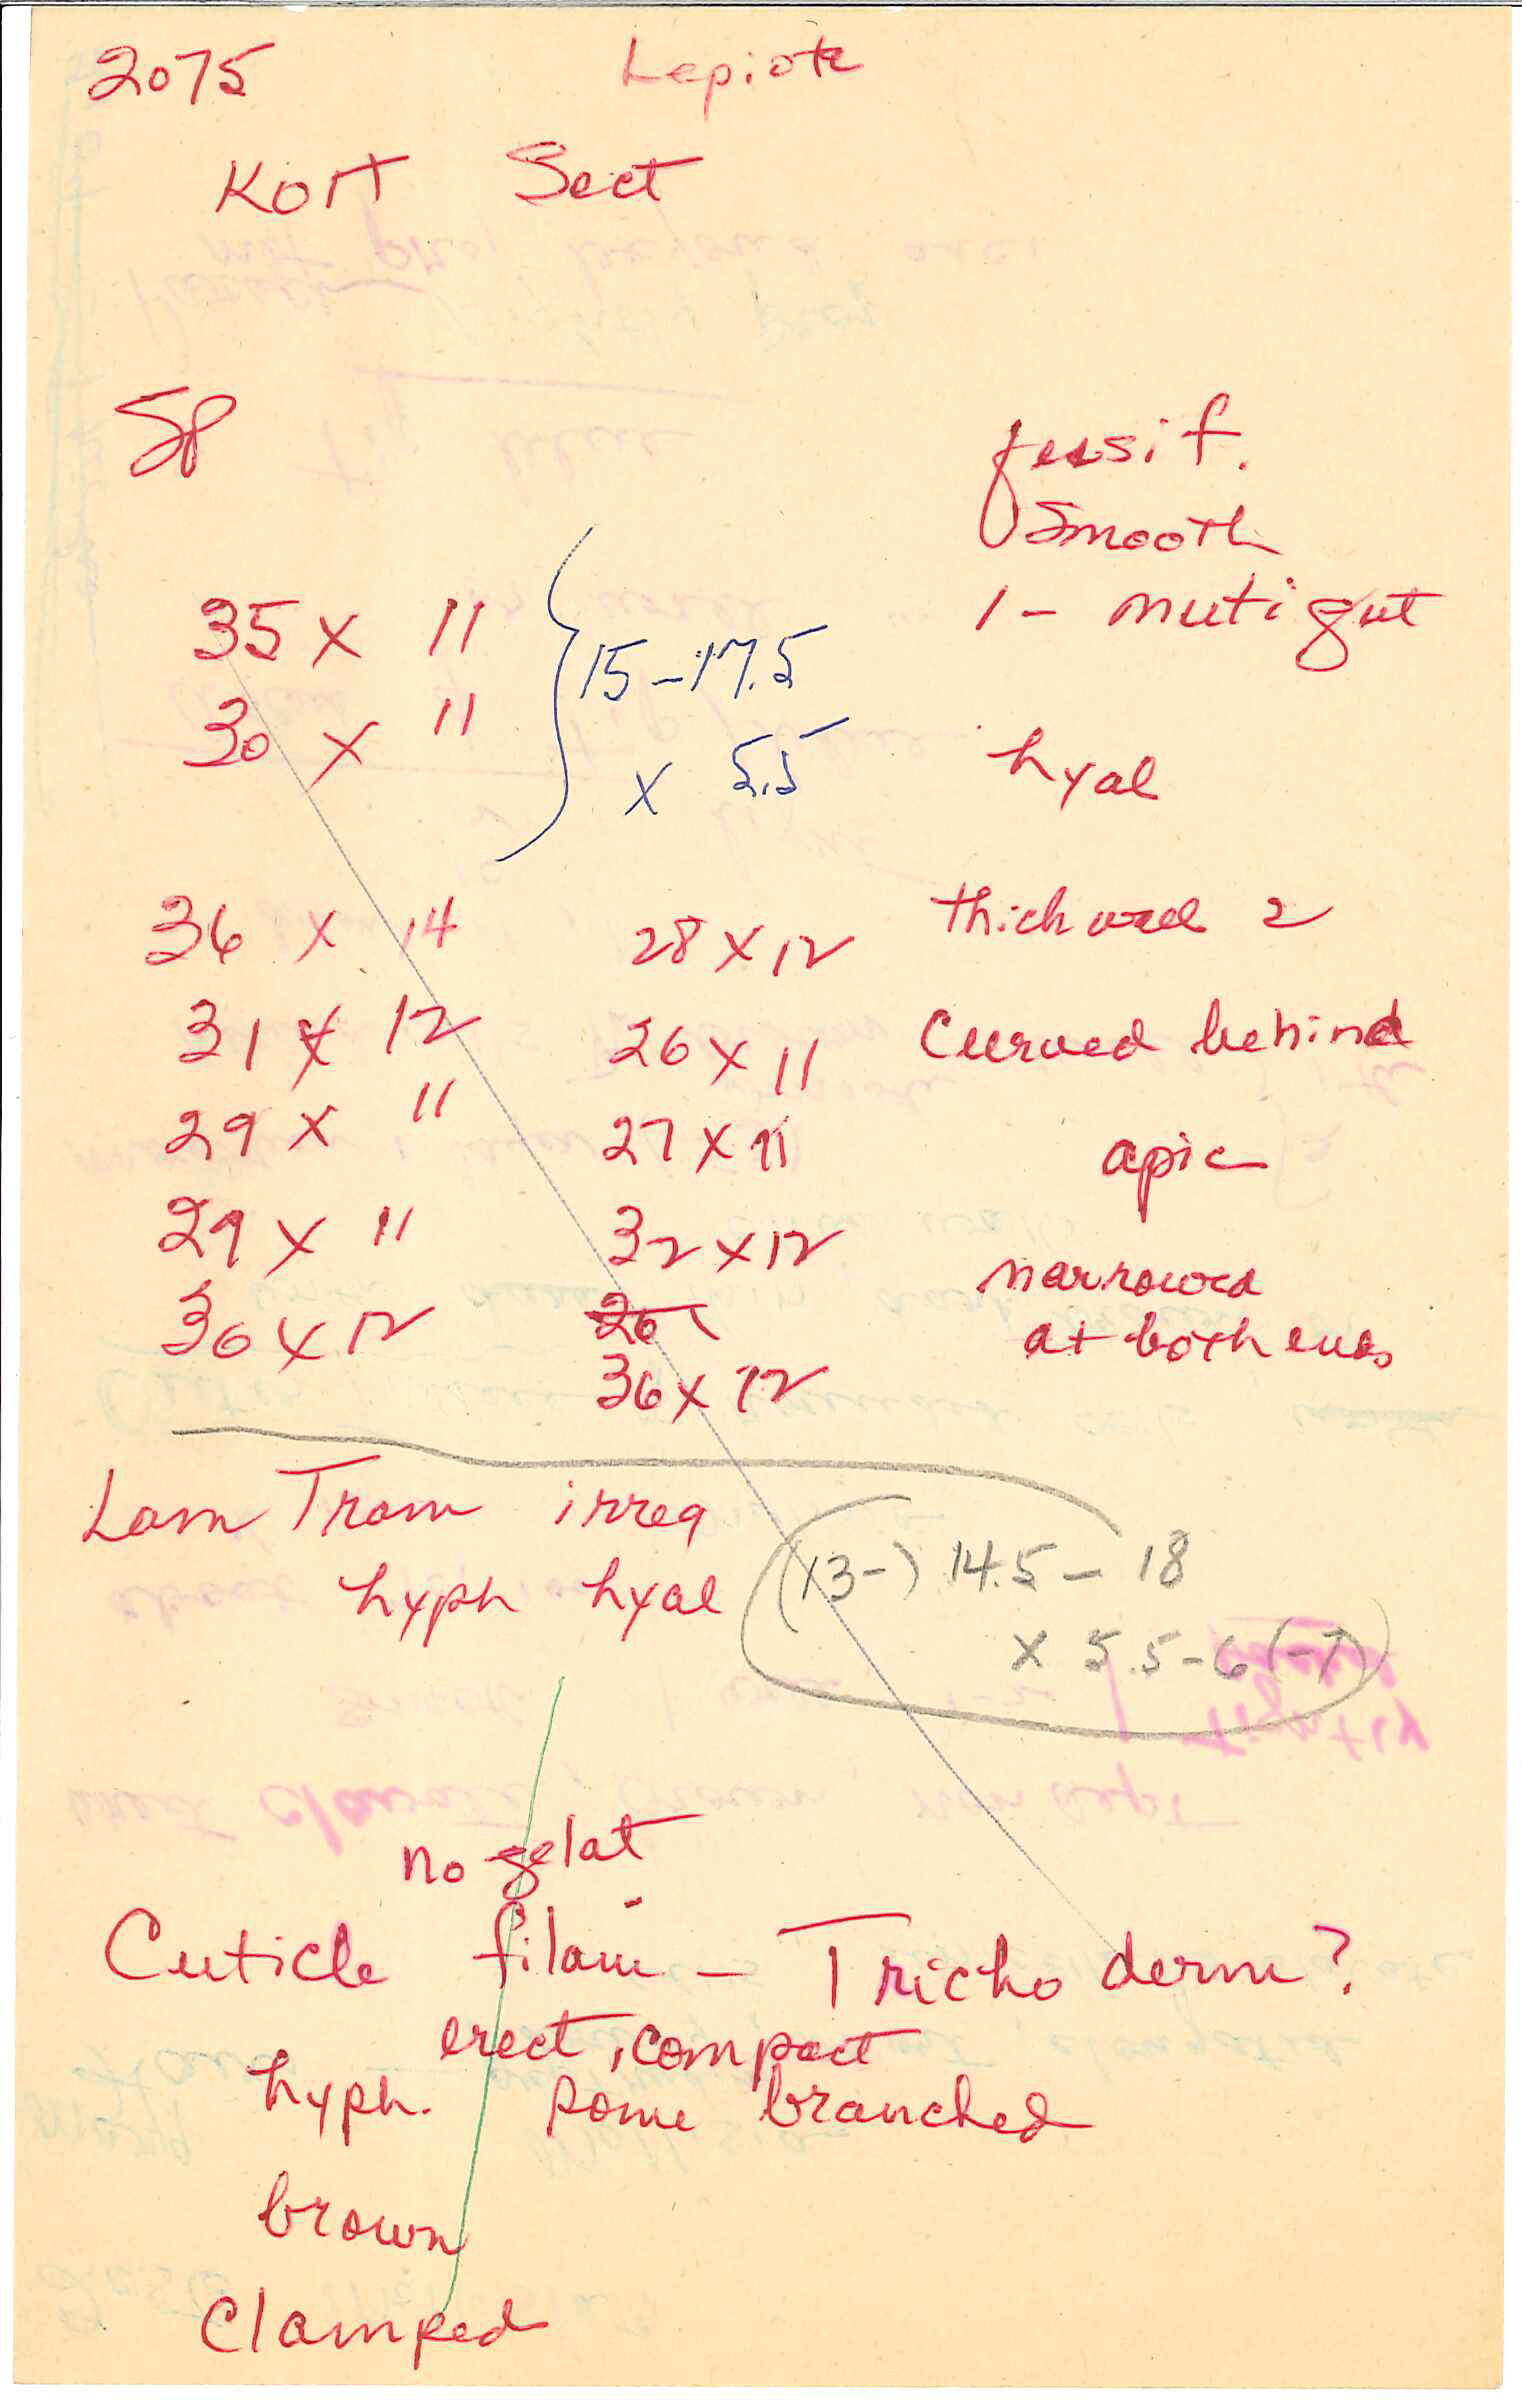 2075 Lepiota
KOH Sect
Sp
fusif.
smooth
35 x 11
1 - muti gut
15-17.5
30 x 11
x 5.5
hyal
36 x 14 28 x 12 thick wall 2
31 x 12 26 x 11 Curved behind
29 x 11 27 x 11 apic
29 x 11 32 x 12 narrowed
36 x 12 26 at both ends
36 x 12
Lam Tram irreg
(13-) 14.5 - 18
hyph hyal
x 5.5-6 (-7)
no gelat
Cuticle filam - Trichoderm?
erect, compact
hyph. some branched
brown
Clamped